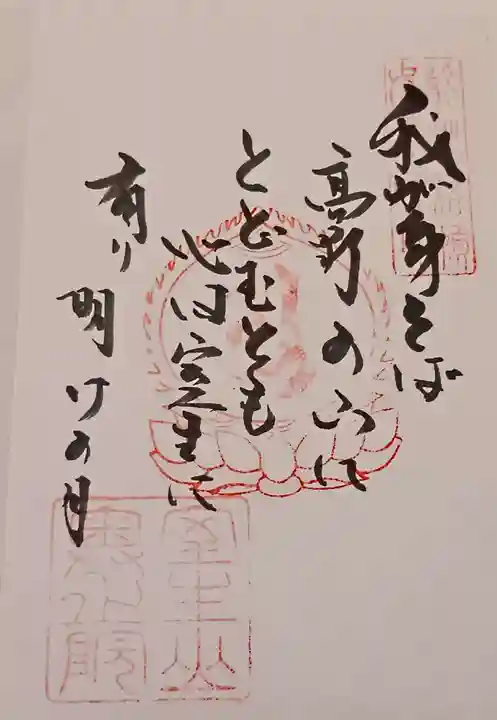 我が身をば
高野の山に
とどむとも
心は室生に
有り明けの月
室生山